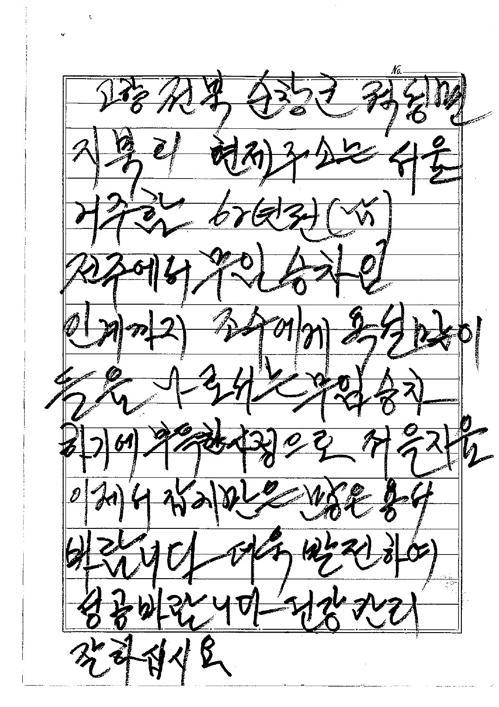 No.
고향 전북 순창군 적성면
지북리 현재주소는 서울
거주함 62년전(넘)
전주에서 무임승차 인
인계까지 조수에게 욕설많이
들음 나로서는 무임승차
하기에 부득한사정으로 저을지음
이제서 잡지만은 많은 용서
바랍니다 더욱 발전하여
성공바랍니다 현량칸리
잘하십시요